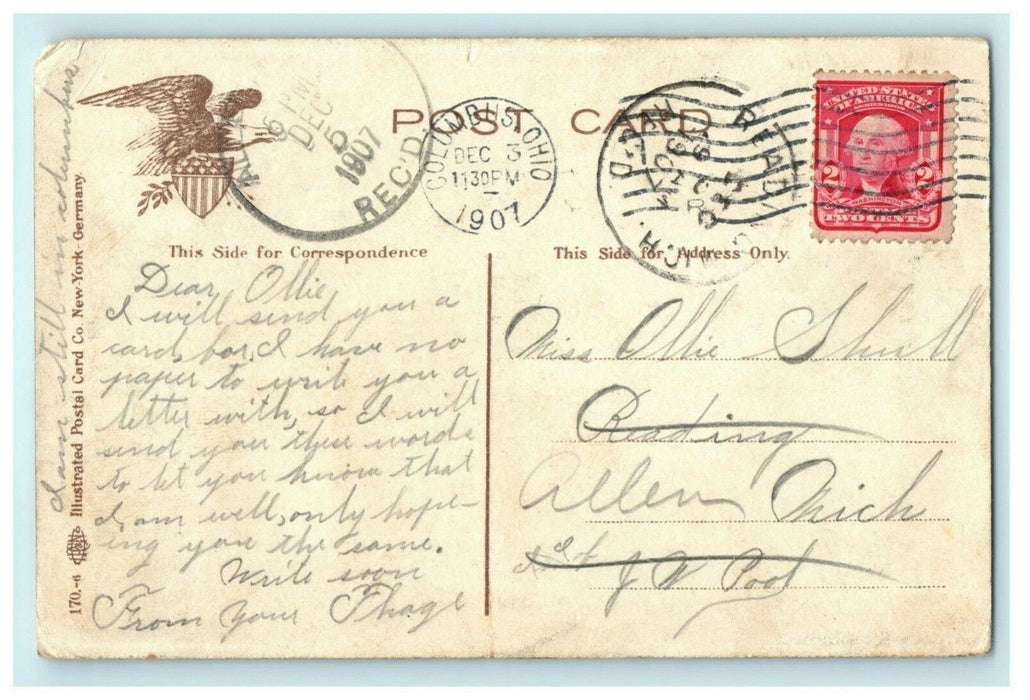 POST CARD
6 PM
DEC
5
1907
REC'D
COLUMBUS, OHIO
DEC 3
11 30 PM
1907
READING
MICH.
UNITED STATES
OF AMERICA
SERIES 1902
2 2
WASHINGTON
TWO CENTS
This Side for Correspondence
This Side for Address Only.
Dear Ollie,
I will send you a
card, for, I have no
paper to write you a
letter with, so I will
send you these words
to let you know that
I am well, only hope-
ing you the same.
Write soon
From your
I am still in columbus
Miss Ollie Shull
Reading
Allen Mich
J W Pool
170.-6 Illustrated Postal Card Co. New-York - Germany